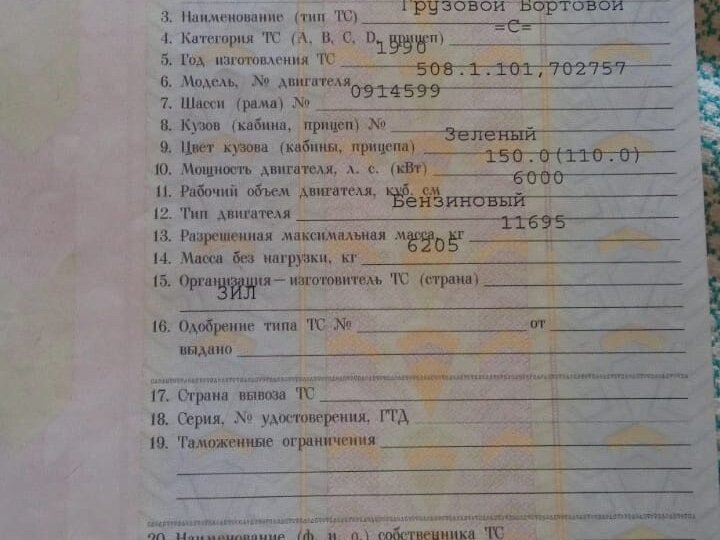 Грузовой Бортовой
3. Наименование (тип ТС)
=C=
4. Категория ТС (А, В, С, D, прицеп)
1990
5. Год изготовления ТС
508.1.101,702757
6. Модель, № двигателя
0914599
7. Шасси (рама) №
8. Кузов (кабина, прицеп) №
Зеленый
9. Цвет кузова (кабины, прицепа)
150.0(110.0)
10. Мощность двигателя, л. с. (кВт)
6000
11. Рабочий объем двигателя, куб. см
Бензиновый
12. Тип двигателя
11695
13. Разрешенная максимальная масса, кг
6205
14. Масса без нагрузки, кг
15. Организация—изготовитель ТС (страна)
ЗИЛ
16. Одобрение типа ТС № от
выдано
17. Страна вывоза ТС
18. Серия, № удостоверения, ГТД
19. Таможенные ограничения
20. Наименование (ф. и. о.) собственника ТС